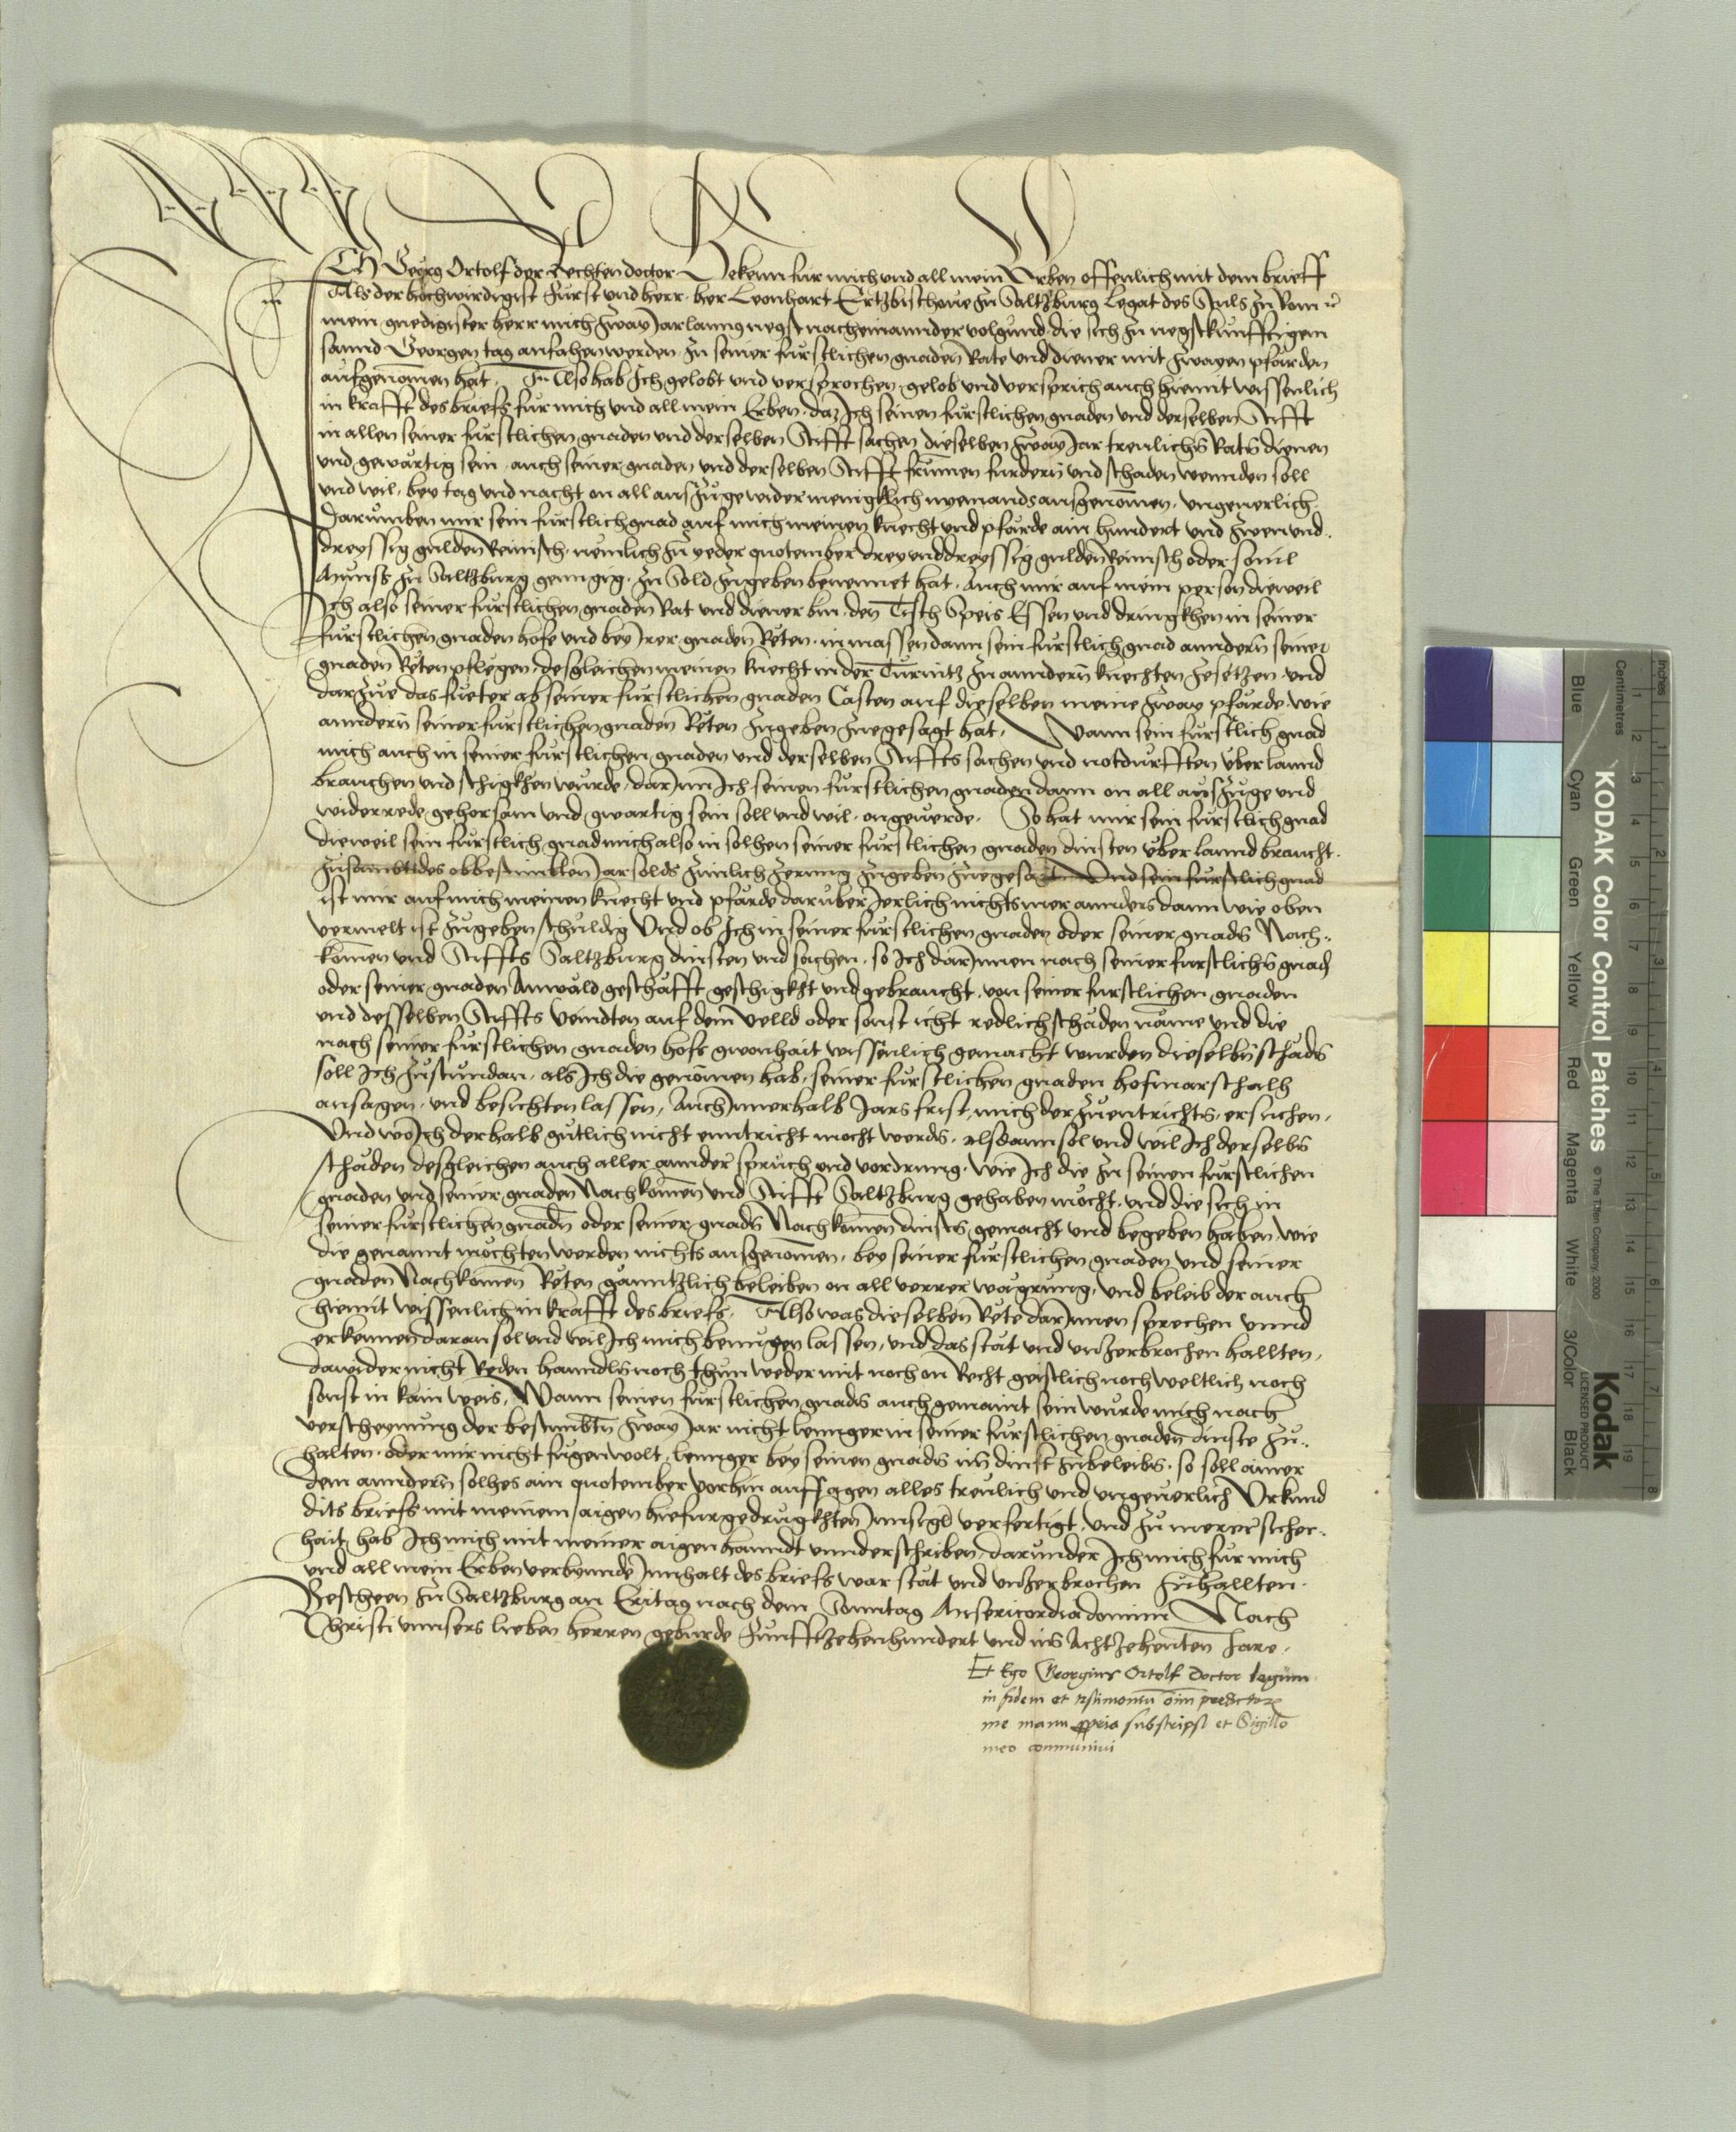 ICh Georg Ortolf der Rechten doctor Bekenn für mich vnd all mein Erben offenlich mit dem brieff
Als der hochwirdigist Fürst vnd herr her Leonhart Ertzbischoue zu Saltzburg Legat des Stuls zu Rom
mein gnedigister herr mich zway Jar lanng negst nacheinannder volgund die sich zu negstkunfftigem
sannd Georgen tag anfahen werden zu seiner fürstlichen gnaden Rate vnd diener mit zwayen pfärden
aufgenomen hat. Also hab Ich gelobt vnd versprochen gelob vnd versprich auch hiemit wissenlich
in krafft des briefs für mich vnd all mein Erben daz Ich seinen fürstlichen gnaden vnd derselben Stifft
in allen seiner fürstlichen gnaden vnd derselben Stifft sachen dieselben zway Jar treulichs Rats dienen
vnd gewärtig sein auch seiner gnaden vnd derselben Stifft frumen furdern vnd schaden wennden soll
vnd wil bey tag vnd nacht on all auszüge wider menigklich nyemands ausgenomen vngeuerlich
Darumben mir sein fürstlich gnad auf mich meinen knecht vnd pfärde ain hundert vnd zwenund
dreyssig gulden Reinisch nemlich zu yeder quotember dreyunddreyssig gulden Reinisch oder souil
Munss zu Saltzburg genngig zu Sold zugeben benennet hat. Auch mir auf mein person dieweil
Ich also seiner fürstlichen gnaden Rat vnd diener bin den Tisch Speis Essen vnd dringkhen in seiner
fürstlichen gnaden hofe vnd bey Irer gnaden Reten inmassen dann sein fürstlich gnad anndern seiner
gnaden Reten pflegen desgleichen meinen knecht in der Turnitz zu anndern knechten zesetzen vnd
darzue das fueter ab seiner fürstlichen gnaden Casten auf dieselben meine zway pfärde wie
anndern seiner fürstlichen gnaden Reten zugeben zuegesagt hat. Wann sein fürstlich gnad
mich auch in seiner fürstlichen gnaden vnd derselben Stiffts sachen vnd notdurfften über lannd
brauchen vnd schigkhen würde darInn Ich seinen fürstlichen gnaden dann on all auszüge vnd
widerrede gehorsam vnd gwartig sein soll vnd wil ongeuerde. So hat mir sein fürstlich gnad
dieweil sein fürstlich gnad mich also in solhen seiner fürstlichen gnaden dinsten über lannd braucht
zusambt des obbestimbten Jarsolds zimlich zerung zugeben zuegesagt Vnd sein fürstlich gnad
ist mir auf mich meinen knecht vnd pfärde darüber Jerlich nichts mer annders dann wie oben
vermelt ist zugeben schuldig Vnd ob Ich in seiner fürstlichen gnaden oder seiner gnaden Nach„
komen vnd Stiffts Saltzburg dinsten vnd sachen so Ich darInnen nach seiner fürstlichen gnad
oder seiner gnaden Anwäld geschäfft geschigkht vnd gebraucht von seiner fürstlichen gnaden
vnd desselben Stiffts veindten auf dem velld oder sonst icht redlich schäden näme vnd die
nach seiner fürstlichen gnaden hofs gwonhait wissenlich gemacht wurden dieselben schäden
soll Ich zustundan als Ich die genomen hab seiner fürstlichen gnaden hofmarschalh
ansagen vnd besichten lassen. Auch Innerhalb Jars frist mich der zuentrichten ersuchen.
Vnd wo Ich derhalb gütlich nicht enntricht mocht werden. alsdann sol vnd wil Ich derselben
schäden desgleichen auch aller annder spruch vnd vordrung wie Ich die zu seinen fürstlichen
gnaden vnd seiner gnaden Nachkomen vnd Stifft Saltzburg gehaben möcht vnd die sich in
seiner fürstlichen gnaden oder seiner gnaden Nachkomen dinsten gemacht vnd begeben haben wie
die genannt möchten werden nichts ausgenomen bey seiner fürstlichen gnaden vnd seiner
gnaden Nachkomen Reten gänntzlich beleiben on all verrer wägrung vnd beleib der auch
hiemit wissenlich in krafft des briefs. Also was dieselben Räte darInnen sprechen vnnd
erkennen daran sol vnd wil Ich mich benügen lassen vnd das stät vnd vnzerbrochen hallten
dawider nicht Reden hanndln noch thun weder mit noch on Recht geistlich noch weltlich noch
sonst in kain weis. Wann seinen fürstlichen gnaden auch gemaint sein würde mich nach
verscheynung der bestimbten zway Jar nicht lennger in seiner fürstlichen gnaden dinste zu„
halten oder mir nicht fügen wolt lennger bey seinen gnaden im dinst zubeleiben so soll ainer
dem anndern solhes ain quotember vorhin auffsagen alles treulich vnd vngeuerlich Vrkund
dits briefs mit meinem aigen hiefurgedrugkhten Innsigl verfertigt vnd zu merer sicher„
hait hab Ich mich mit meiner aigen hanndt vnnderschriben darunder Ich mich für mich
vnd all mein Erben verbynnde Innhalt des briefs war stät vnd vnzerbrochen zuhallten.
Bescheen zu Saltzburg an Eritag nach dem Sonntag Misericordia domini Nach
Christi vnnsers lieben herren geburde Funfftzehenhundert vnd im Achtzehenten Jare.
Et Ego Georgius Ortolf Doctor legum
in fidem et testimoniū oīm predictorꝝ
me manu ꝓpria subscripsi et Sigillo
meo communiui
KODAK Color Control Patches
© The Tiffen Company, 2000
Kodak
LICENSED PRODUCT
Blue
Cyan
Green
Yellow
Red
Magenta
White
3/Color
Black
Inches
Centimetres
1 2 3 4 5 6 7 8
1 2 3 4 5 6 7 8 9 10 11 12 13 14 15 16 17 18 19